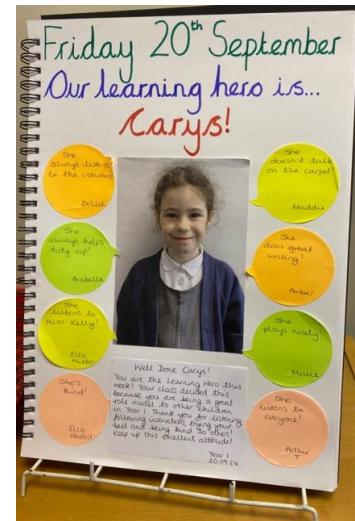 Friday 20th September
Our learning hero is...
Carys!
She
always listens
to the instructions
Delilah
She
always helps
tidy up!
Arabella
She
listens to
Miss Kelly!
Ella
She's
kind!
Ella
She
doesn't talk
on the carpet
Maddie
She
does great
writing!
Amber
She
plays nicely!
Millie
She
listens to
everyone!
Arthur
T
Well Done Carys!
You are the Learning Hero this
week! Your class decided this
because you are being a great
role model to other children
in Year 1. Thank you for listening,
following instructions, trying your
best and being kind to others!
Keep up this excellent attitude!
Year 1
20.09.24